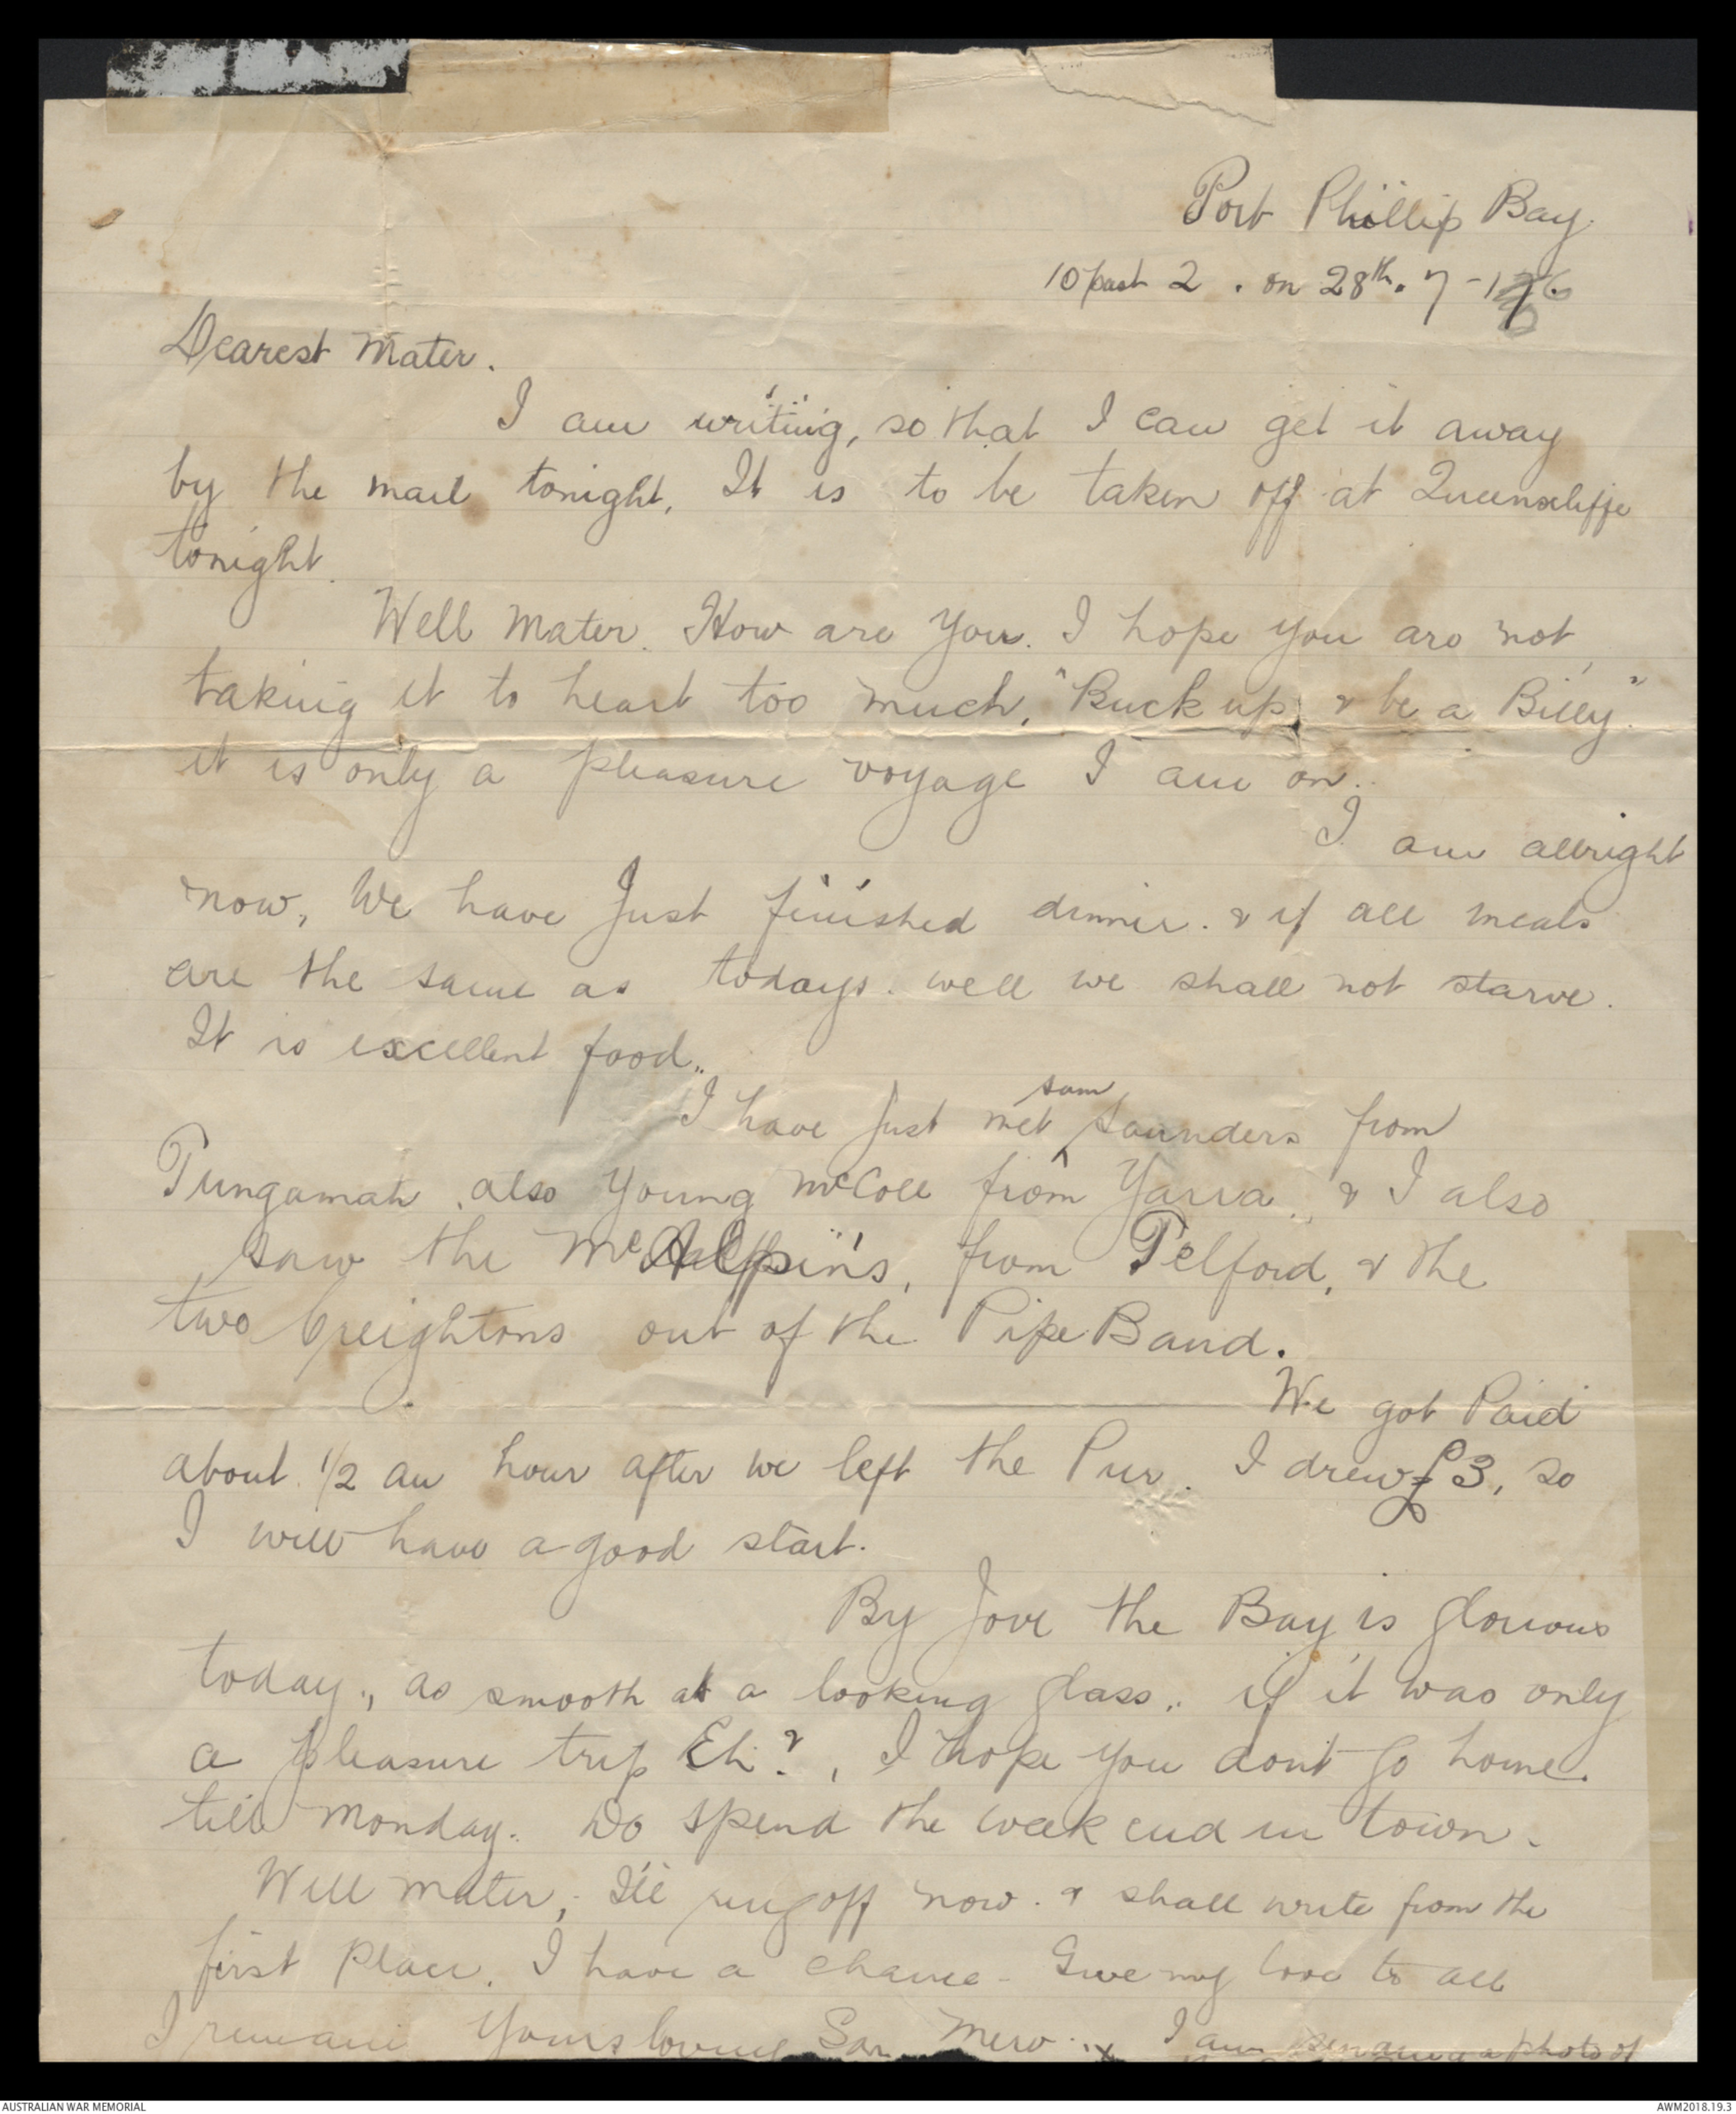 Port Phillip Bay.
10 past 2. on 28th. 7-16
Dearest Mater.
I am writing, so that I can get it away
by the mail tonight, It is to be taken off at Queenscliffe
tonight.
Well Mater. How are You. I hope you are not
taking it to heart too much, "Buck up & be a Billy."
it is only a pleasure voyage I am on.
I am allright
now, We have Just finished dinner. & if all meals
are the same as todays. well we shall not starve.
It is excellent food..
I have just met Sam Saunders from
Tungamah. also Young McColl from Yarra., & I also
saw the McAlpin's, from Telford, & the
two Creightons out of the Pipe Band.
We got Paid
about 1/2 an hour after we left the Pier. I drew £3, so
I will have a good start.
By Jove the Bay is glorious
today., as smooth as a looking glass.. if it was only
a pleasure trip Eh?, I hope you don't go home
till Monday. Do spend the week end in town.
Well mater, I'll ring off now. & shall write from the
first place. I have a chance - Give my love to all
I remain Yours loving Son Merv.. x I am sending a photo of
AUSTRALIAN WAR MEMORIAL
AWM2018.19.3